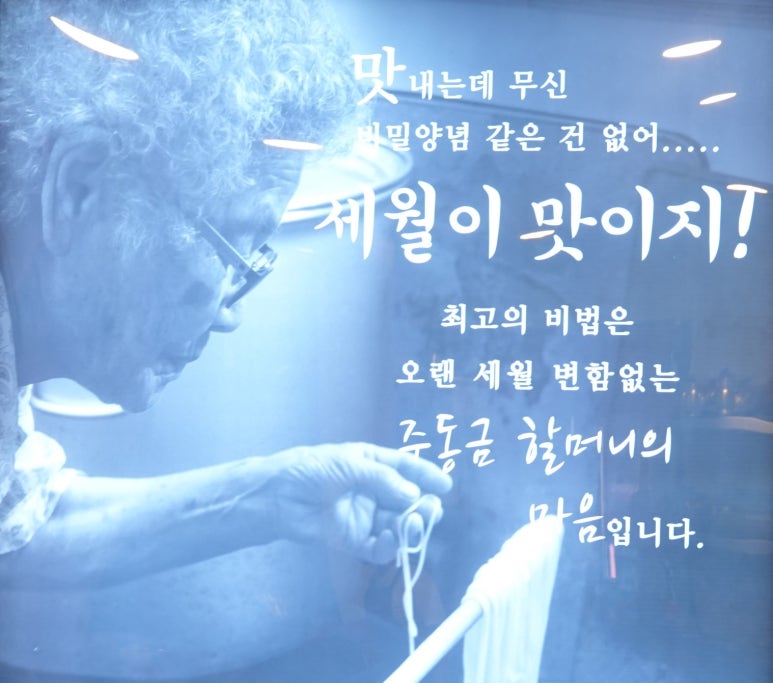 맛내는데 무신
비밀양념 같은 건 없어.....
세월이 맛이지!
최고의 비법은
오랜 세월 변함없는
주동금 할머니의
마음입니다.